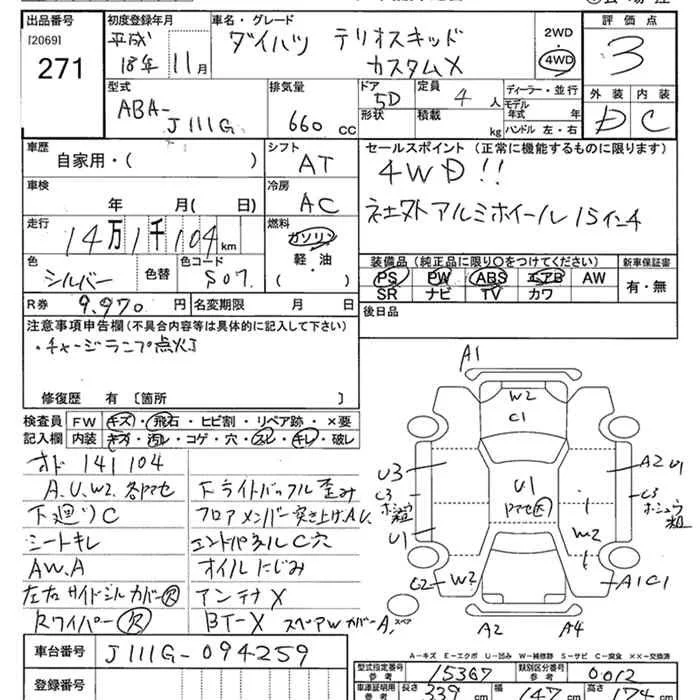 出品番号 初度登録年月 車名・グレード 評価点
[2069] 平成 ダイハツ テリオスキッド 2WD
271 18年 11月 カスタムX 4WD 3
型式 排気量 ドア 定員 ディーラー・並行 外装 内装
ABA- 5D 4人 モデル年式 年 D C
J111G 660cc 形状 積載 kg ハンドル 左・右
車歴 シフト セールスポイント(正常に機能するものに限ります)
自家用・( ) AT 4WD!!
車検 冷房
年 月( 日) AC アルミホイール 15インチ
走行 燃料
14万1千104km ガソリン
色 色コード 軽・油 装備品(純正品に限り○をつけてください) 新車保証書
シルバー 色替 S07 ( ) PS PW ABS エアB AW 有・無
SR ナビ TV カワ
R券 9,970円 名変期限 月 日 後日品
注意事項申告欄(不具合内容等は具体的に記入して下さい)
・チャージランプ点火
修復歴 有[箇所 ]
A1
W2
C1
検査員 FW キズ・飛石・ヒビ割・リペア跡・×要
記入欄 内装 キズ・汚レ・コゲ・穴・スレ・キレ・破レ
オド 141104
A.U.W2.各マセ 下ライトバッフル歪み
下廻りC フロアメンバー突き上げA.U.
シートキレ エンドパネルC穴
AW.A オイルにじみ
左右サイドシルカバー欠 アンテナX
Rワイパー欠 BT-X スペアWカバーA
U3 U1 A2 U1
C3 C3
U1 W2
C2 W2 A1C1
スペア A2 A4
A-キズ E-エクボ U-凹み W-補修跡 S-サビ C-腐食 XX-交換済
車台番号 J111G-094259
型式指定番号 参考 15367 類別区分番号 参考 0012
登録番号
車庫証明用 参考 長さ 339cm 幅 147cm 高さ 174cm